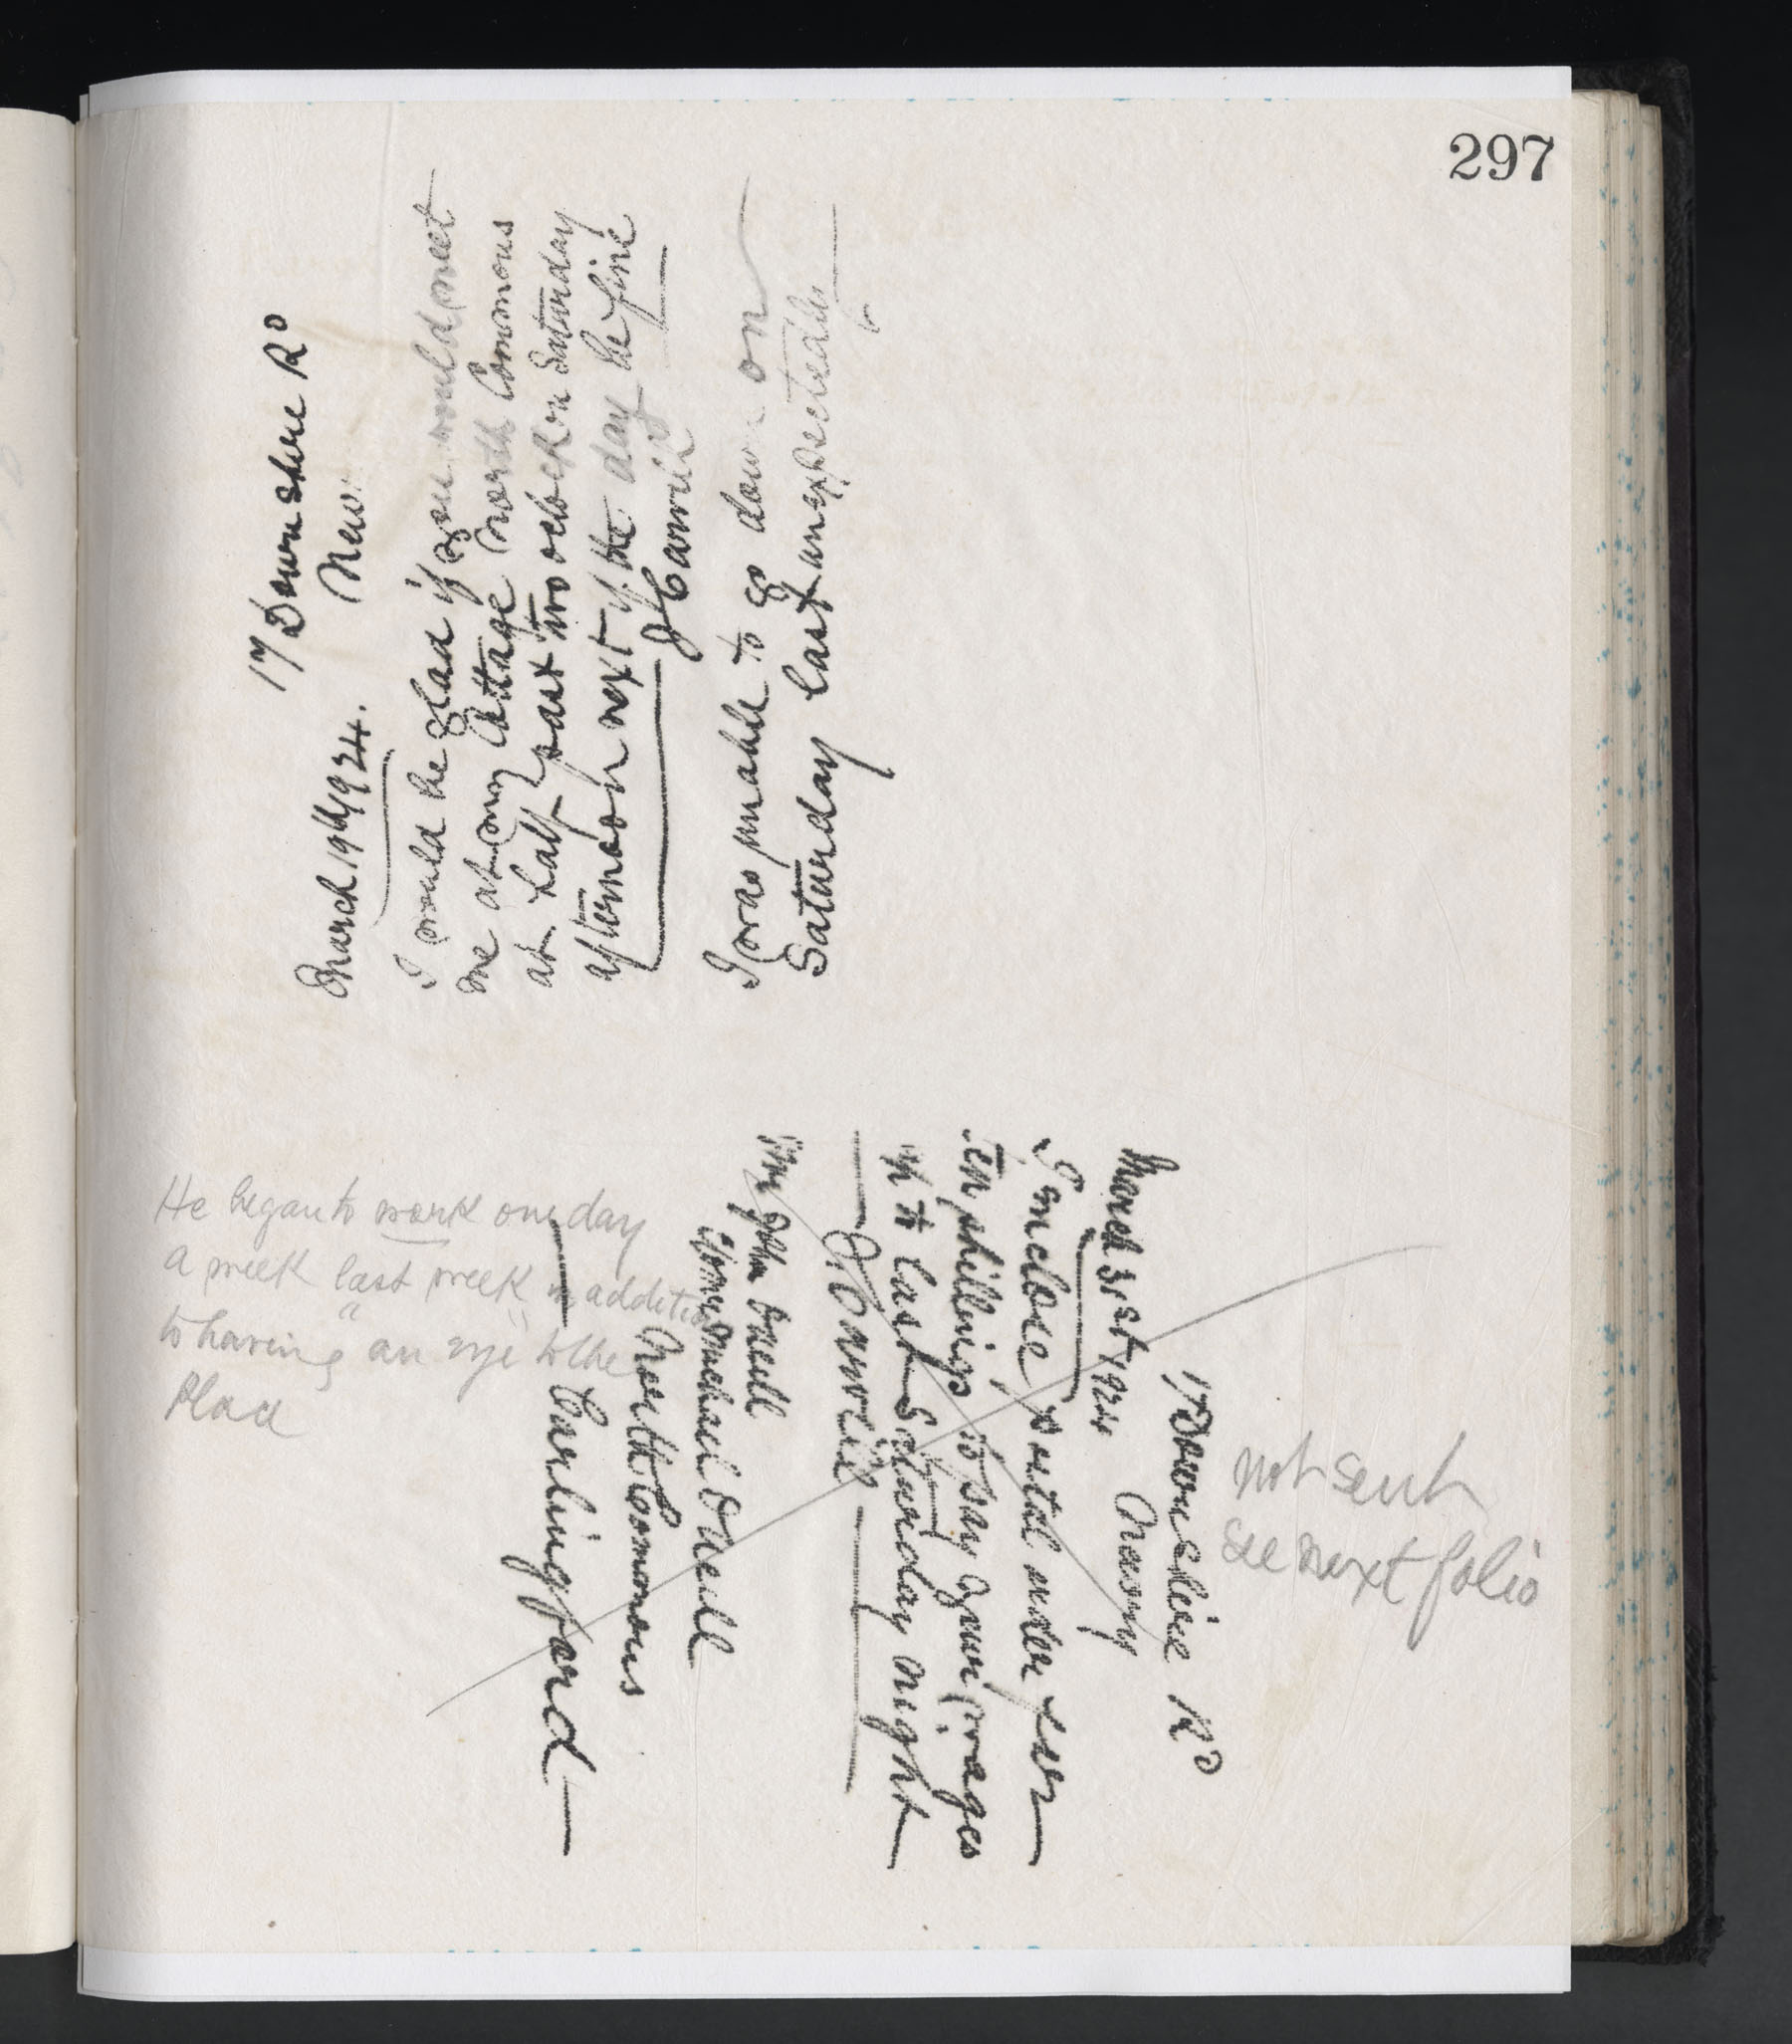 297
17 Downshire Rd
New
March 19th 1924.
I would be glad if you would meet
me at my Cottage North Commons
at half past two oclock on Saturday
afternoon next if the day be fine
I was unable to go down on
Saturday last unexpectedly
He began to work one day
a week last week in addition
to having "an eye" to the
place
17 Downshire Rd
Newry
March 31st 1924
I enclose postal order for
ten shillings to pay your wages
up to last Saturday night
Mr John Oneill
Michael Oneill
North Commons
Carlingford
not sent
see next folio